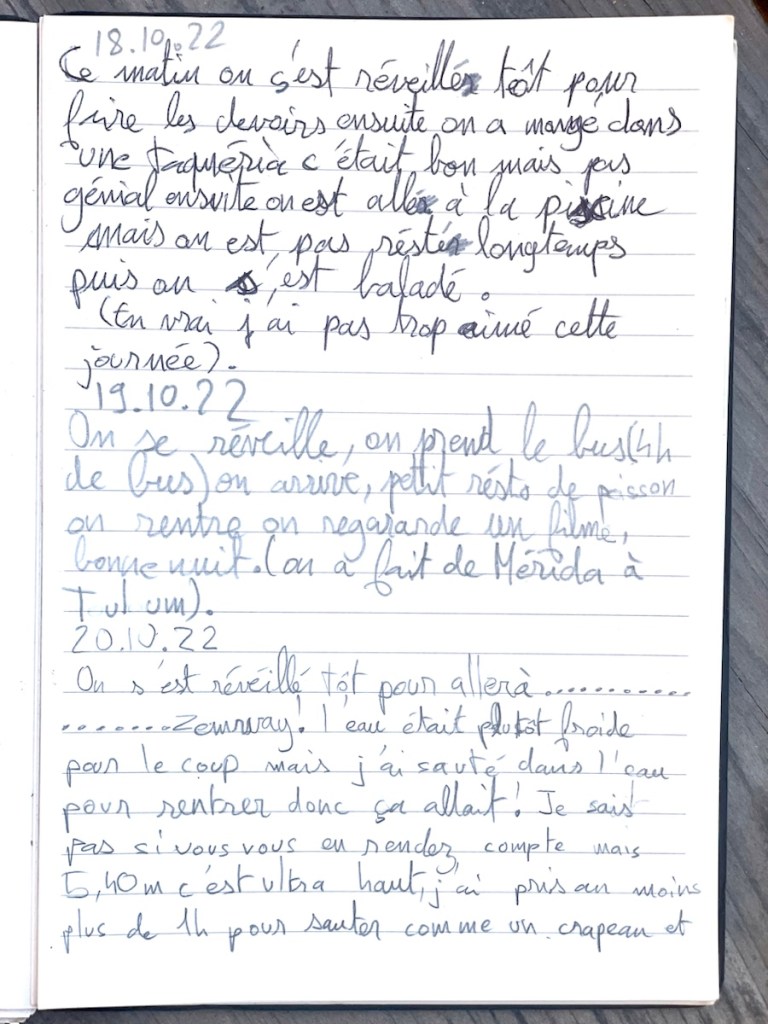 18.10.22
Ce matin on s'est réveillé tôt pour
faire les devoirs ensuite on a mangé dans
une taquéria c'était bon mais pas
génial ensuite on est allé à la piscine
mais on est pas résté longtemps
puis on s'est baladé.
(En vrai j'ai pas trop aimé cette
journée).
19.10.22
On se réveille, on prend le bus(4h
de bus) on arrive, petit résto de poisson
on rentre on regararde un filme,
bonne nuit.(on a fait de Mérida à
Tulum).
20.10.22
On s'est réveillé tôt pour aller à ..............
...........Zemway! l'eau était plutôt froide
pour le coup mais j'ai sauté dans l'eau
pour rentrer donc ça allait! Je sais
pas si vous vous en rendez compte mais
5,40m c'est ultra haut, j'ai pris au moins
plus de 1h pour sauter comme un crapeau et